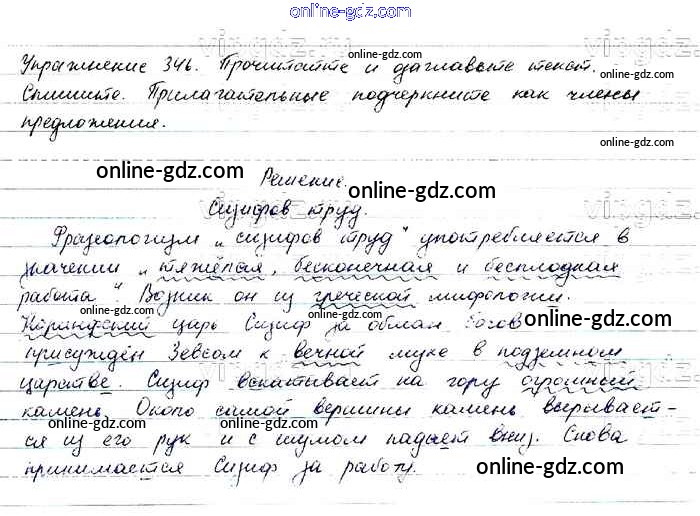 online-gdz.com
Упражнение 346. Прочитайте и озаглавьте текст.
online-gdz.com
Спишите. Прилагательные подчеркните как члены
предложения.
online-gdz.com
online-gdz.com
Решение.
online-gdz.com
Сизифов труд.
Фразеологизм „сизифов труд" употребляется в
online-gdz.com
значении „тяжёлая, бесконечная и бесплодная
работа". Возник он из греческой мифологии.
Коринфский царь Сизиф за обман богов
online-gdz.com
присуждён Зевсом к вечной муке в подземном
царстве. Сизиф вскатывает на гору огромный
камень. Около самой вершины камень вырывает-
online-gdz.com
ся из его рук и с шумом падает вниз. Снова
принимается Сизиф за работу.
online-gdz.com